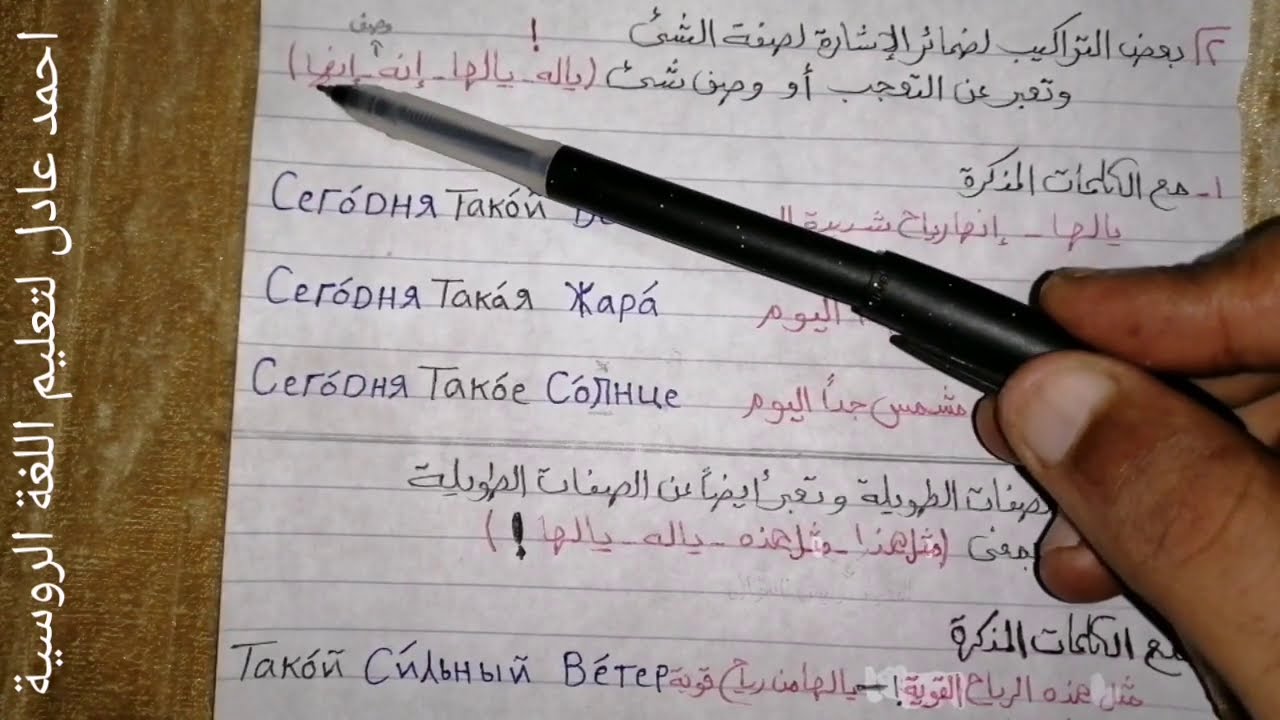 احمد عادل لتعليم اللغة الروسية
٢ بعض التراكيب لضمائر الإشارة لصفة الشئ
وصف
وتعبر عن التعجب أو وصف شئ (ياله - يالها - إنه - إنها) !
١- مع الكلمات المذكرة
Сегóдня Такóй
يالها - إنها رياح شديدة
Сегóдня Такáя Жарá
اليوم
Сегóдня Такóе Сóлнце
مشمس جداً اليوم
الطويلة وتعبر أيضاً عن الصفات الطويلة
(مثل هذا - مثل هذه - ياله - يالها !)
مع الكلمات المذكرة
Такóй Си́льный Вéтер
مثل هذه الرياح القوية! - يالها من رياح قوية